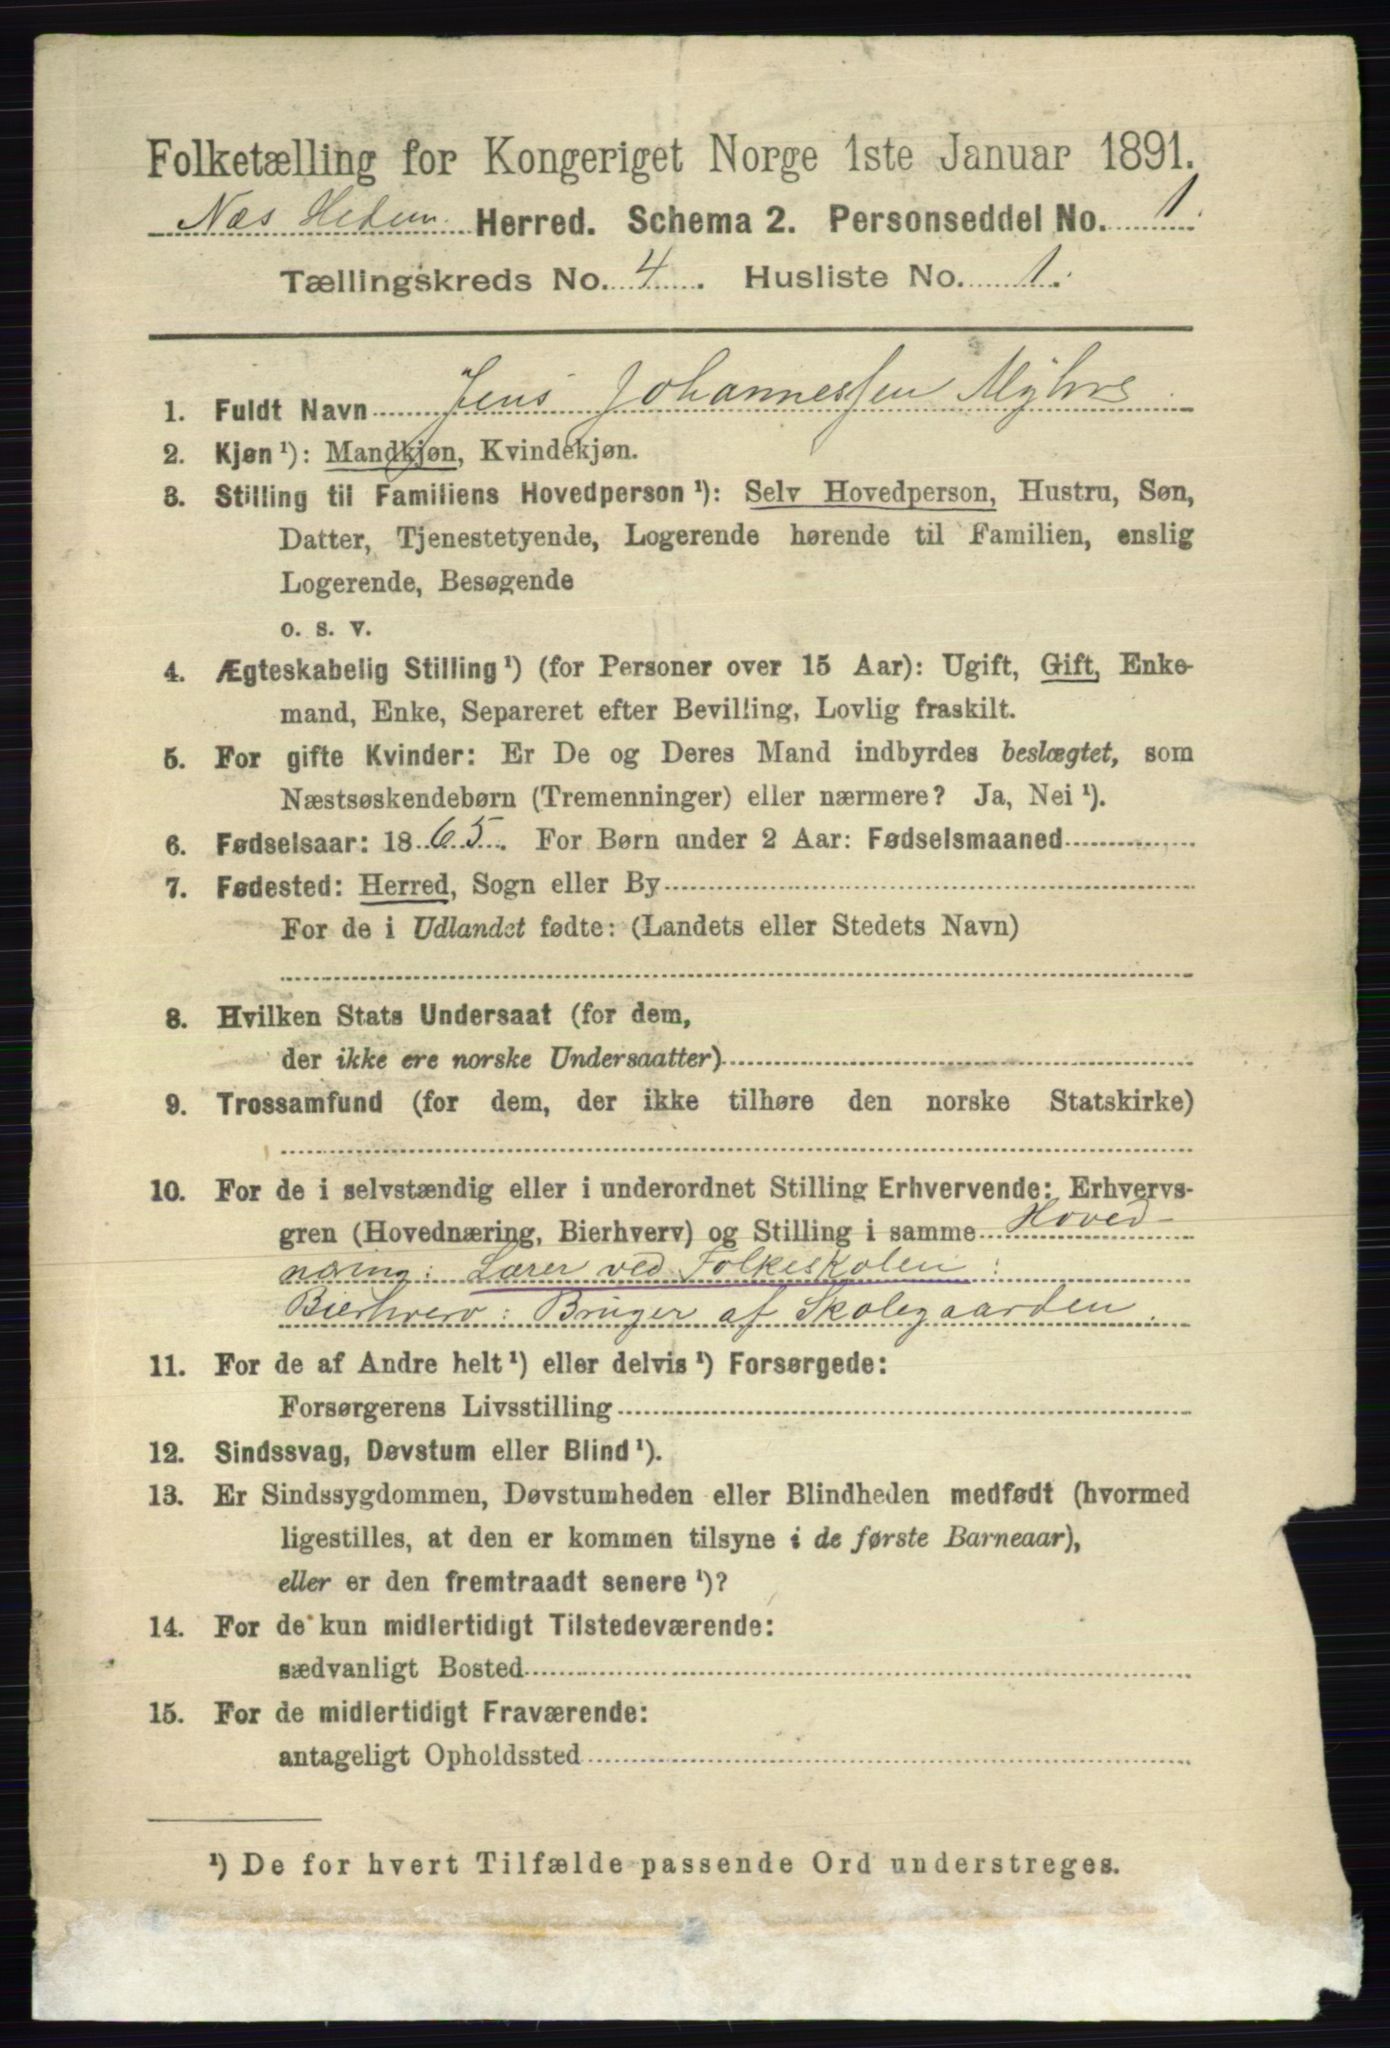 Folketælling for Kongeriget Norge 1ste Januar 1891.
Næs Hedem. Herred. Schema 2. Personseddel No. 1.
Tællingskreds No. 4. Husliste No. 1.
1. Fuldt Navn Jens Johannessen Myhre
2. Kjøn¹): Mandkjøn, Kvindekjøn.
3. Stilling til Familiens Hovedperson¹): Selv Hovedperson, Hustru, Søn,
Datter, Tjenestetyende, Logerende hørende til Familien, enslig
Logerende, Besøgende
o. s. v.
4. Ægteskabelig Stilling¹) (for Personer over 15 Aar): Ugift, Gift, Enke-
mand, Enke, Separeret efter Bevilling, Lovlig fraskilt.
5. For gifte Kvinder: Er De og Deres Mand indbyrdes beslægtet, som
Næstsøskendebørn (Tremenninger) eller nærmere? Ja, Nei¹).
6. Fødselsaar: 1865. For Børn under 2 Aar: Fødselsmaaned
7. Fødested: Herred, Sogn eller By
For de i Udlandet fødte: (Landets eller Stedets Navn)
8. Hvilken Stats Undersaat (for dem,
der ikke ere norske Undersaatter)
9. Trossamfund (for dem, der ikke tilhøre den norske Statskirke)
10. For de i selvstændig eller i underordnet Stilling Erhvervende: Erhvervs-
gren (Hovednæring, Bierhverv) og Stilling i samme Hoved-
næring: Lærer ved Folkeskolen:
Bierhverv: Bruger af Skolegaarden.
11. For de af Andre helt¹) eller delvis¹) Forsørgede:
Forsørgerens Livsstilling
12. Sindssvag, Døvstum eller Blind¹).
13. Er Sindssygdommen, Døvstumheden eller Blindheden medfødt (hvormed
ligestilles, at den er kommen tilsyne i de første Barneaar),
eller er den fremtraadt senere¹)?
14. For de kun midlertidigt Tilstedeværende:
sædvanligt Bosted
15. For de midlertidigt Fraværende:
antageligt Opholdssted
¹) De for hvert Tilfælde passende Ord understreges.